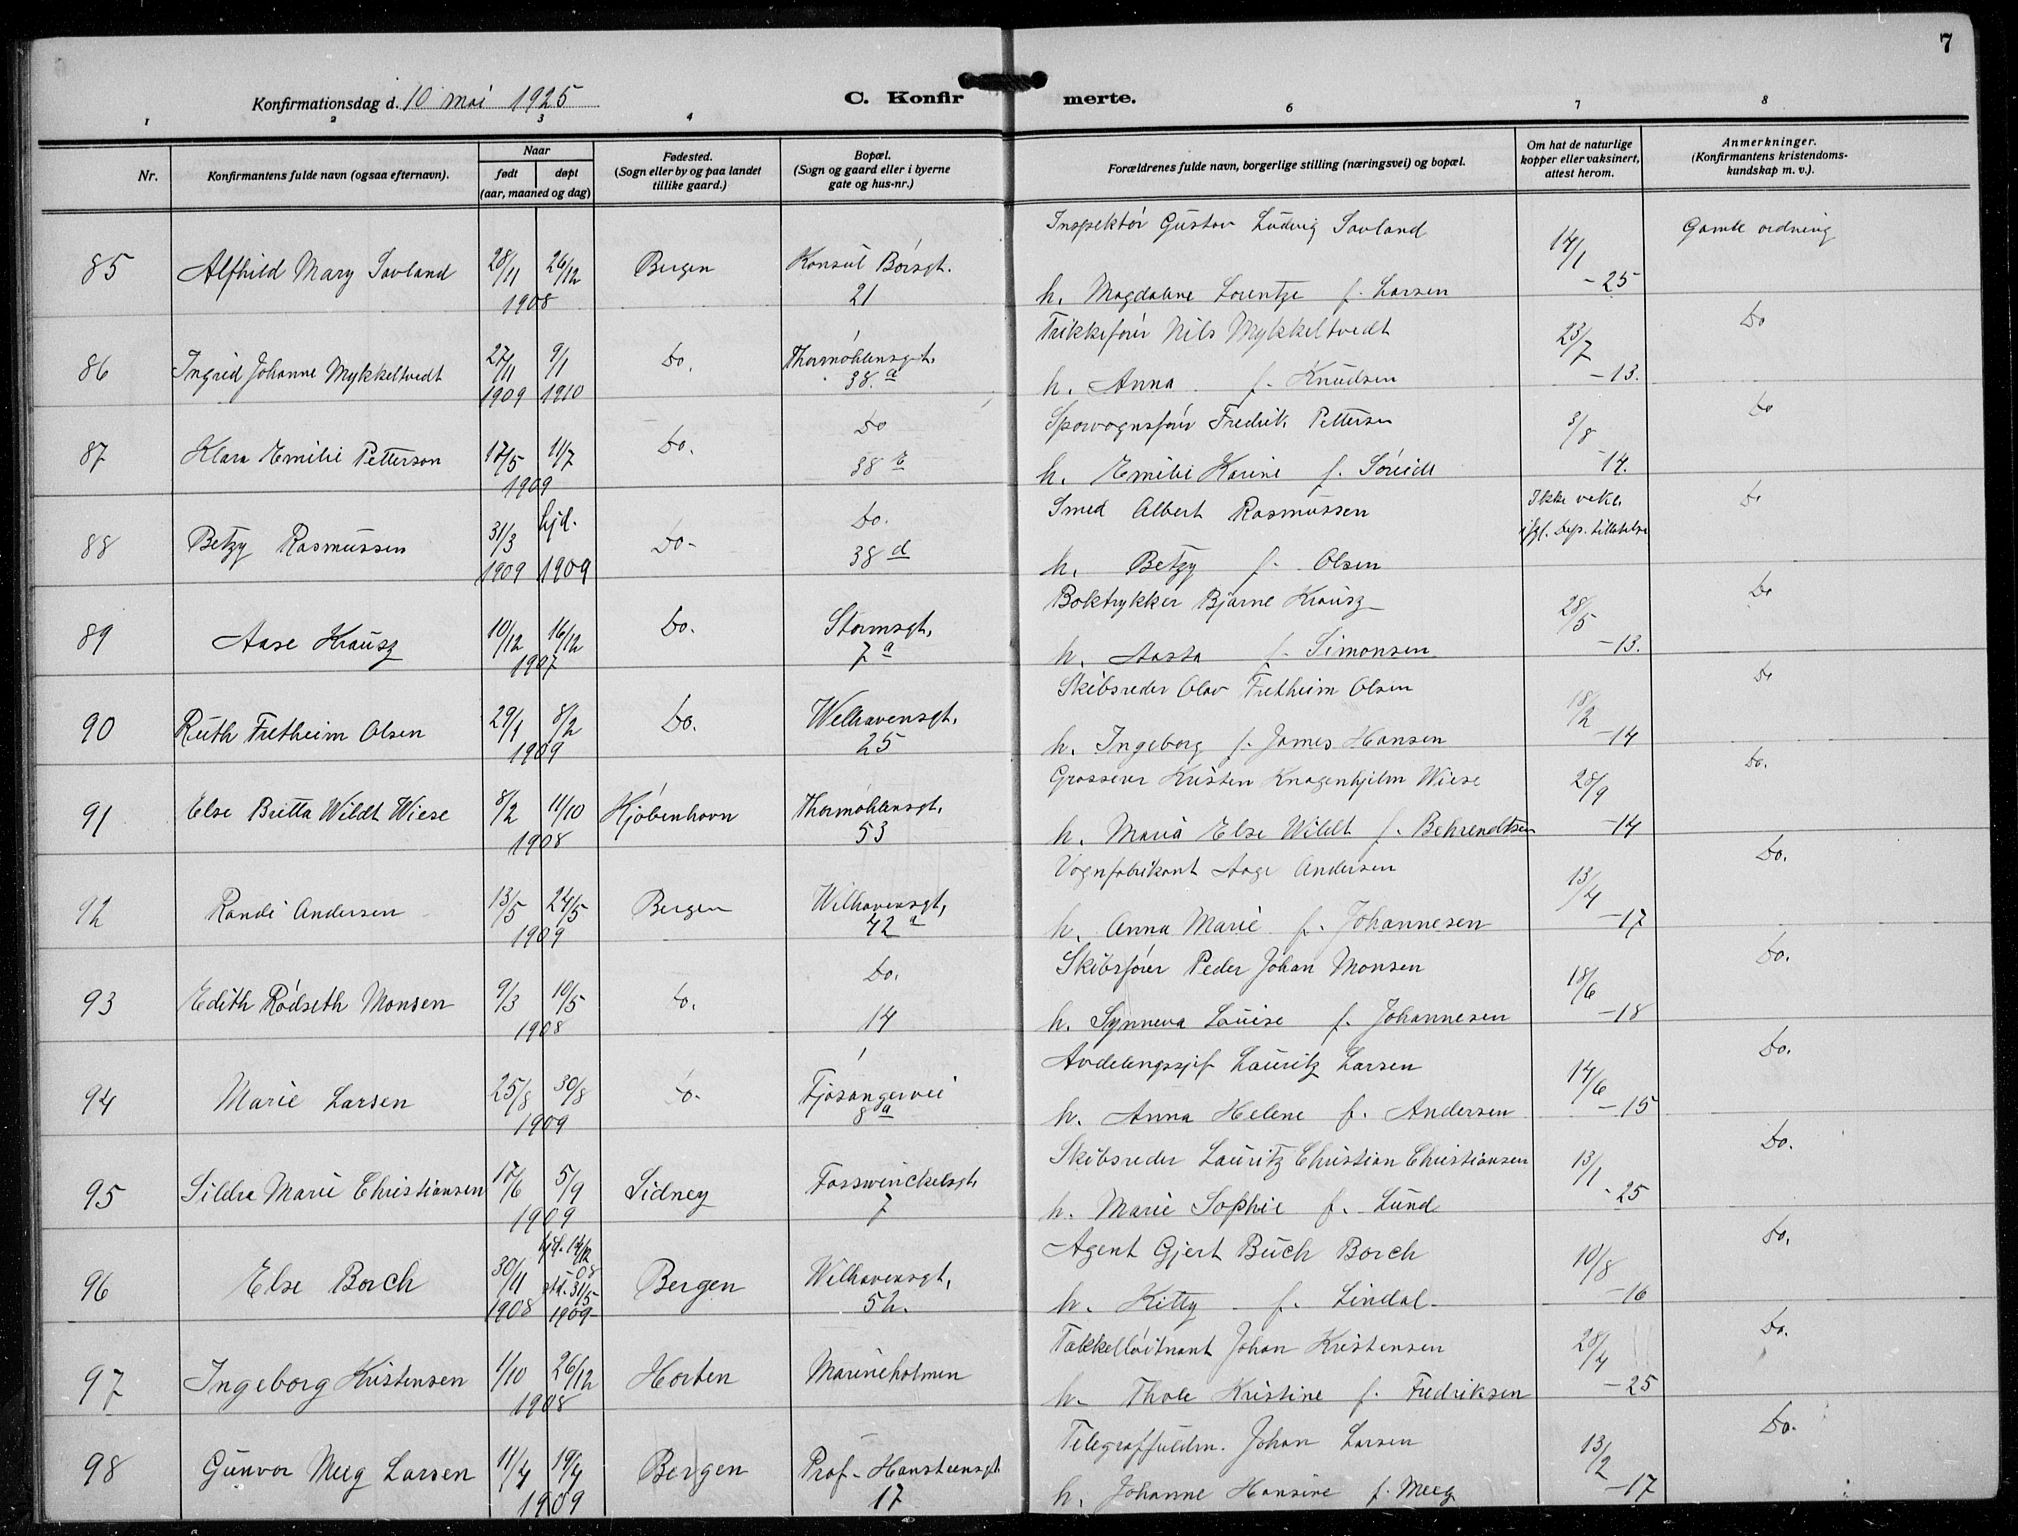 7
Konfirmationsdag d. 10 mai 1925
C. Konfirmerte.
1 2 3 4 6 7 8
Nr.
Konfirmantens fulde navn (ogsaa efternavn).
Naar
født døpt
(aar, maaned og dag)
Fødested.
(Sogn eller by og paa landet
tillike gaard.)
Bopæl.
(Sogn og gaard eller i byerne
gate og hus-nr.)
Forældrenes fulde navn, borgerlige stilling (næringsvei) og bopæl.
Om hat de naturlige
kopper eller vaksinert,
attest herom.
Anmerkninger.
(Konfirmantens kristendoms-
kundskap m. v.).
Inspektør Gustav Ludvig Savland Gamle ordning
85 Alfhild Mary Savland 28/11 26/12 Bergen Konsul Børsgt. 14/1
1908 21 h. Magdalene Lorentze f. Larsen -25
Trikkefører Nils Mykkeltvedt Do
86 Ingrid Johanne Mykkeltvedt 27/11 9/1 Do. Thormøhlensgt. 23/7
1909 1910 38.a h. Anna f. Knudsen -13.
Do Sporvognsfører Fredrik Pettersen Do
87 Klara Emilie Petterson 17/5 11/7 Do. 3/8
1909 38 E h. Emilie Karine f. Søreide -14.
hjd. Do. Smed Albert Rasmussen Ikke vakc. Do
88 Betzy Rasmussen 31/3 Do- ifgl. Dep. tillatelse
1909 1909 38 d h. Betzy f. Olsen
Boktrykker Bjarne Krausz Do
89 Aase Krausz 10/12 16/12 Do. Stormsgt. 28/5
1907 7a h. Aasta f. Simonsen -13.
Skibsreder Olav Fretheim Olsen Do
90 Ruth Fretheim Olsen 29/1 8/2 Do. Welhavensgt. 18/2
1909 25 h. Ingeborg f. James Hansen -14
Grosserer Kristen Knagenhjelm Wiese Do.
91 Else Britta Wildt Wiese 8/2 11/10 Kjøbenhavn Thormøhlensgt. 28/9
1908 53 h. Maria Else Wildt f. Behrendtsen -14
Vognfabrikant Aage Andersen Do.
92 Randi Andersen 13/5 24/5 Bergen Welhavensgt. 13/4
1909 42a h. Anna Marie f. Johannesen -17
Do. Skibsfører Peder Johan Monsen Do.
93 Edith Rødseth Monsen 9/3 10/5 Do. 18/6
1908 14 h. Synneva Louise f. Johannesen -18
Avdelingssjef Lauritz Larsen Do.
94 Marie Larsen 25/8 30/8 Do- Fjøsangervei 14/6
1909 8a h. Anna Helene f. Andersen -15
Skibsreder Lauritz Christian Christiansen Do.
95 Sildra Marie Christiansen 17/6 5/9 Sidney Fosswinckelsgt. 13/1
1909 7 h. Marie Sophie f. Lund -25
hjd. 14/12 08 Agent Gjert Büch Borch Do.
96 Else Borch 30/11 std. 31/5 Bergen Welhavensgt. 10/8
1908 1909- 52. h. Kitty f. Lindal -16
Takkelløitnant Johan Kristensen Do.
97 Ingeborg Kristensen 1/10 26/12 Horten Marineholmen 28/4
1908 h. Thale Kristine f. Fredriksen -25
Telegraffuldm. Johan Larsen Do.
98 Gunvor Meeg Larsen 11/4 19/4 Bergen Prof- Hansteensgt 13/2
1909 17 h. Johanne Hansine f. Meeg -17